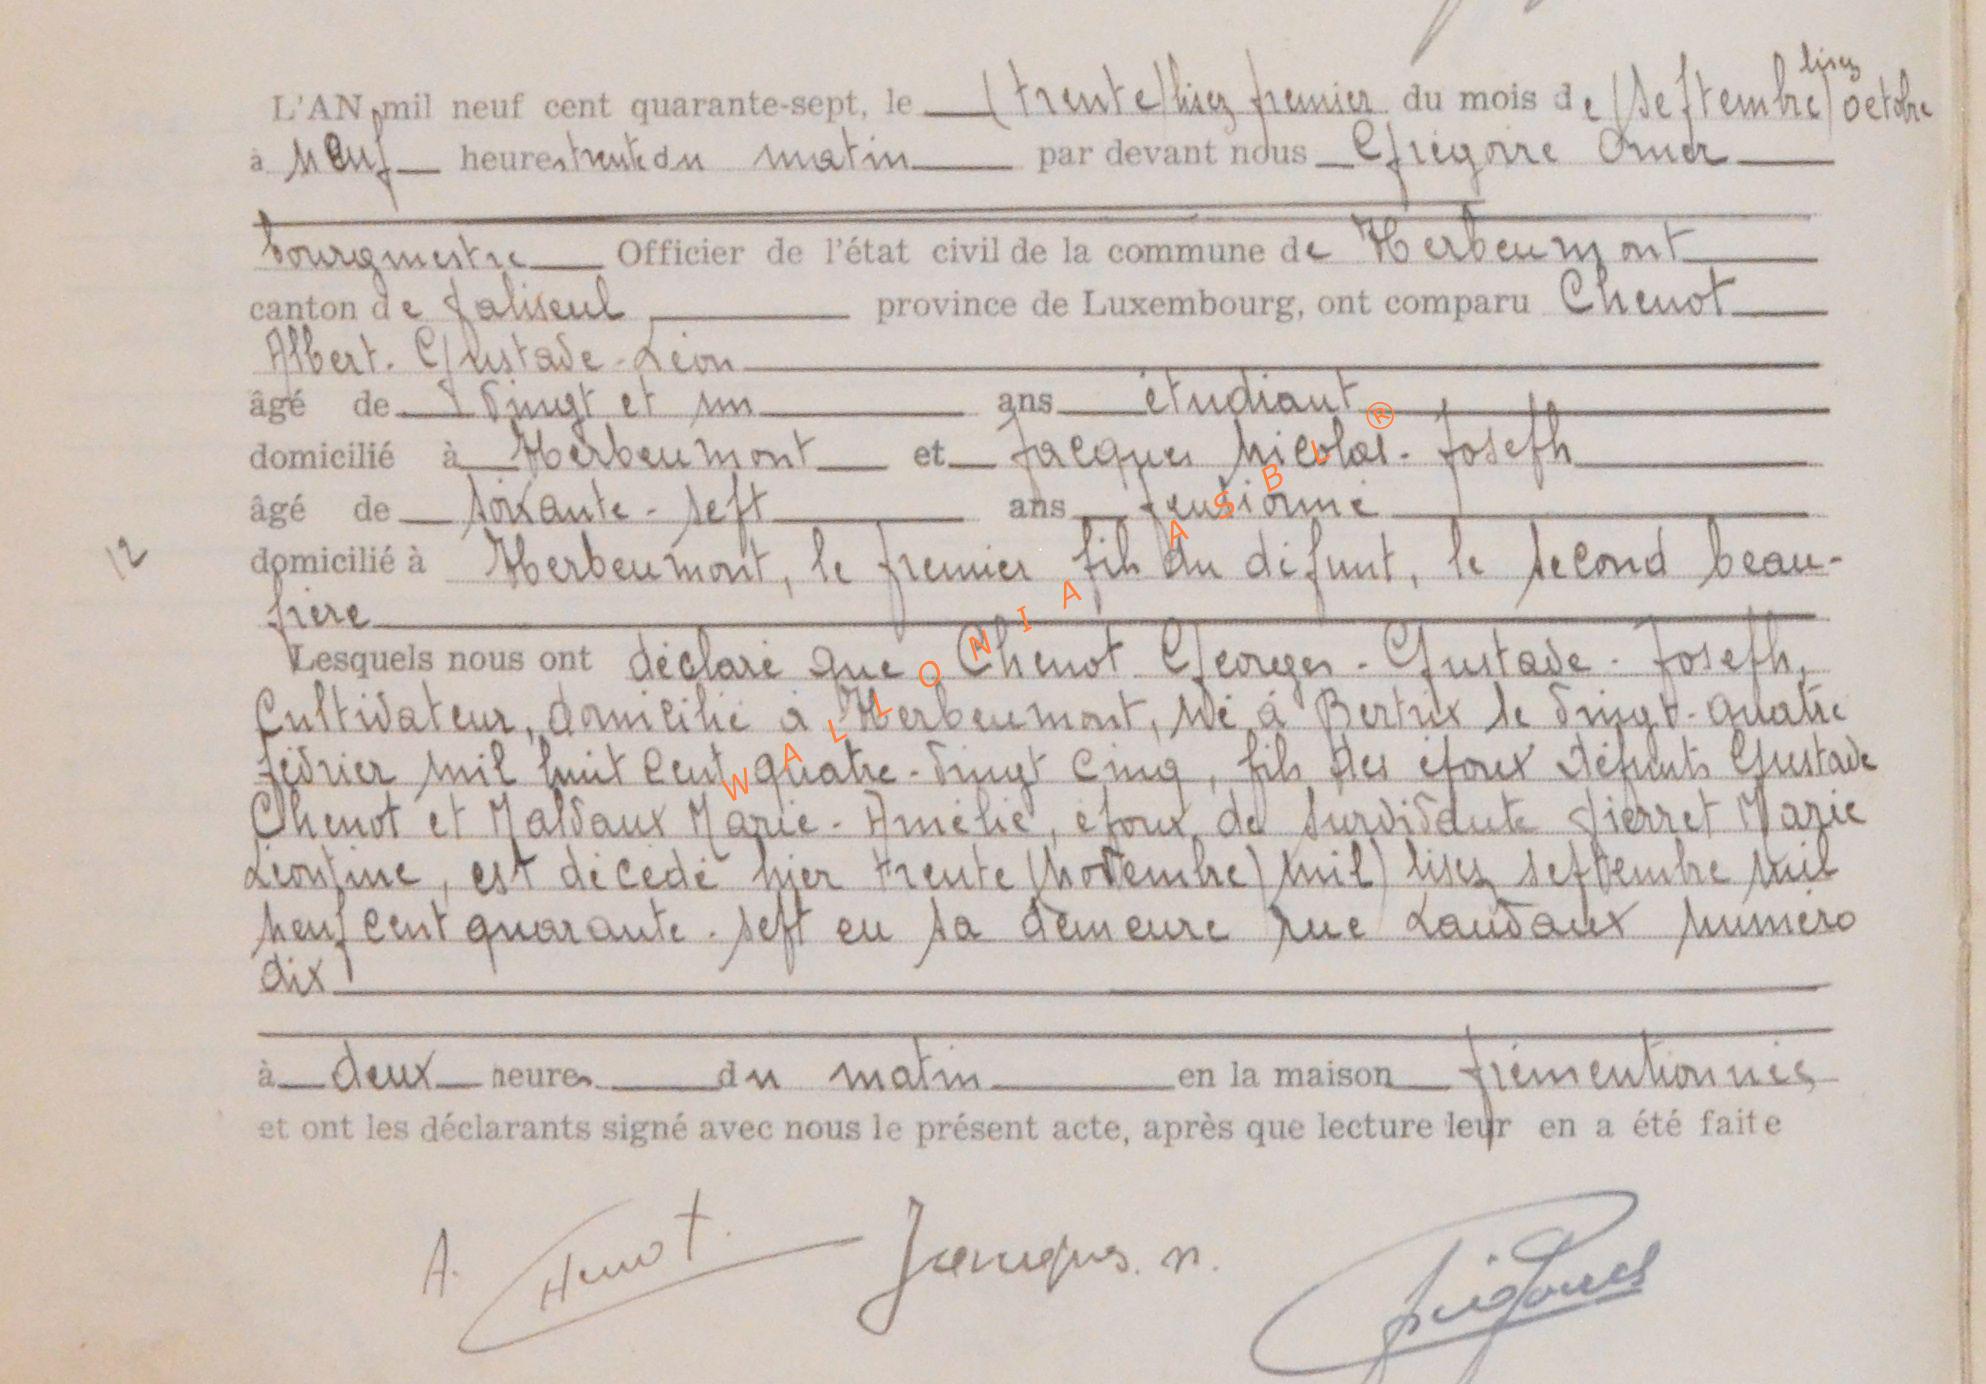 L'AN mil neuf cent quarante-sept, le (trente) lisez premier du mois de (septembre) lisez octobre
à neuf heures trente du matin par devant nous Grégoire Omer
bourgmestre Officier de l'état civil de la commune de Herbeumont
canton de Paliseul province de Luxembourg, ont comparu Chenot
Albert-Gustave-Léon
âgé de vingt et un ans étudiant
domicilié à Herbeumont et Jacques Nicolas-Joseph
âgé de soixante-sept ans pensionné
12
domicilié à Herbeumont, le premier fils du défunt, le second beau-
frère
Lesquels nous ont déclaré que Chenot Georges-Gustave-Joseph,
cultivateur, domicilié à Herbeumont, né à Bertrix le vingt-quatre
février mil huit cent quatre-vingt cinq, fils des époux défunts Gustave
Chenot et Maldaux Marie-Amélie, époux de survivante Pierret Marie
Léontine, est décédé hier trente (novembre) mil) lisez septembre mil
neuf cent quarante-sept en sa demeure rue Lauvaux numéro
dix
à deux heures du matin en la maison prémentionnée
et ont les déclarants signé avec nous le présent acte, après que lecture leur en a été faite
A. Chenot. Jacques. n.
WALLONIA ASBL ®